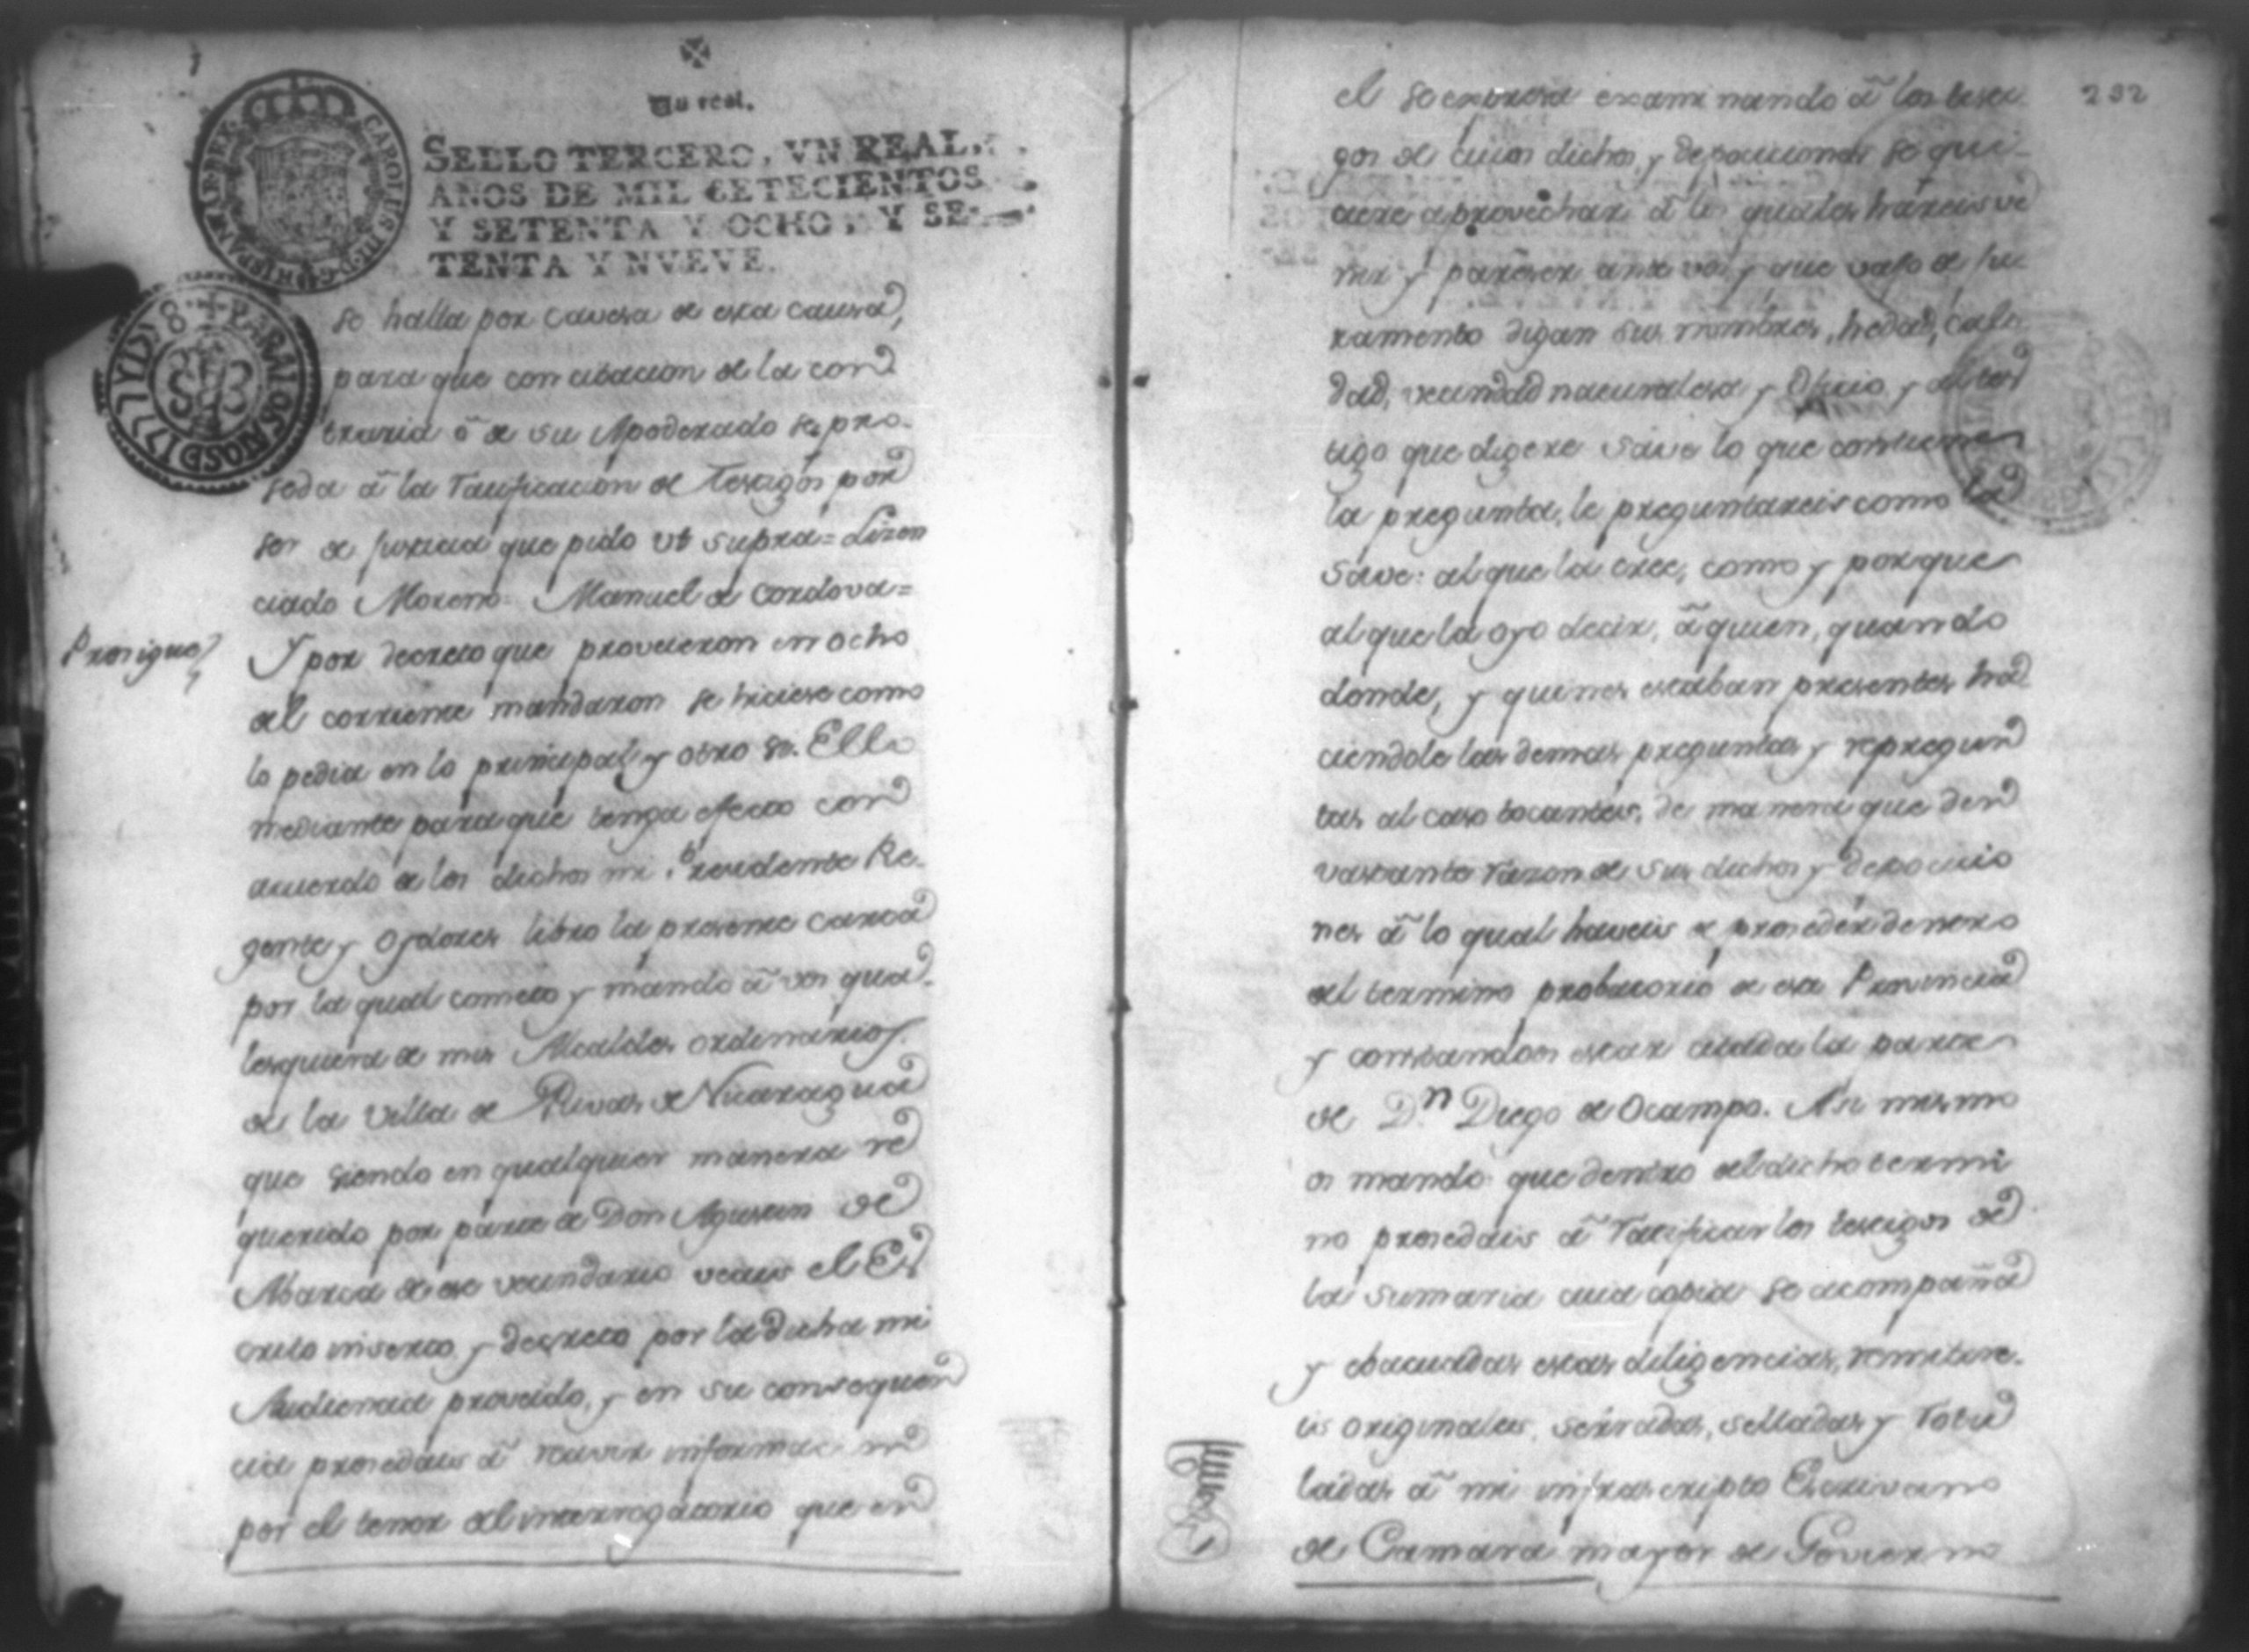 Un real.
SELLO TERCERO, VN REAL,
AÑOS DE MIL SETECIENTOS
Y SETENTA Y OCHO, Y SE-
TENTA Y NVEVE.
CAROLUS III D G HISPANIAR REX
PARA LOS AÑOS D 1778
se halla por caveza de esta causa,
para que con citacion de la con
traria ô de su Apoderado se pro-
seda â la ratificacion de testigos por
ser de justicia que pido vt supra = Lizen
ciado Moreno = Manuel de Cordova =
Prosigue
Y por decreto que proveieron en ocho
del corriente mandaron se hiciese como
lo pedia en lo principal y otro si. Ello
mediante para que tenga efecto con
acuerdo de los dichos mi Presidente Re-
gente y Oydores libro la presente carta
por la qual cometo y mando â vos qua-
lesquiera de mis Alcaldes ordinarios
de la Villa de Rivas de Nicaragua
que siendo en qualquier manera re
querido por parte de Don Agustin de
Abarca de ese vecindario veais el Es
crito inserto y decreto por la dicha mi
Audiencia proveido, y en su consequen
cia prosedais â recivir informacion
por el tenor del interrogatorio que en
232
el se expresa examinando â los testi
gos de cuios dichos y deposiciones se qui-
ciere aprovechar â los quales hareis ve
nir y pareser ante vos y que vajo de ju
ramento digan sus nombres, hedad, cali
dad, vecindad naturalesa y Oficio y al tes
tigo que digere save lo que contiene
la pregunta, le preguntareis como la
save: al que la cree, como y porque
al que la oyo decir, â quien, quando
donde, y quienes estaban presentes ha
ciendole las demas preguntas y repregun
tas al caso tocantes, de manera que den
vastante razon de sus dichos y deposicio
nes â lo qual haveis de proseder dentro
del termino probatorio de esa Provincia
y constandoos estar citada la parte
de Dn Diego de Ocampo. Asi mismo
os mando que dentro del dicho termi
no prosedais â ratificar los testigos de
la sumaria cuia copia se acompaña
y ebacuadas estas diligencias, remitire-
is originales, serradas, selladas y rotu
ladas â mi infrascripto Escrivano
de Camara mayor de Govierno